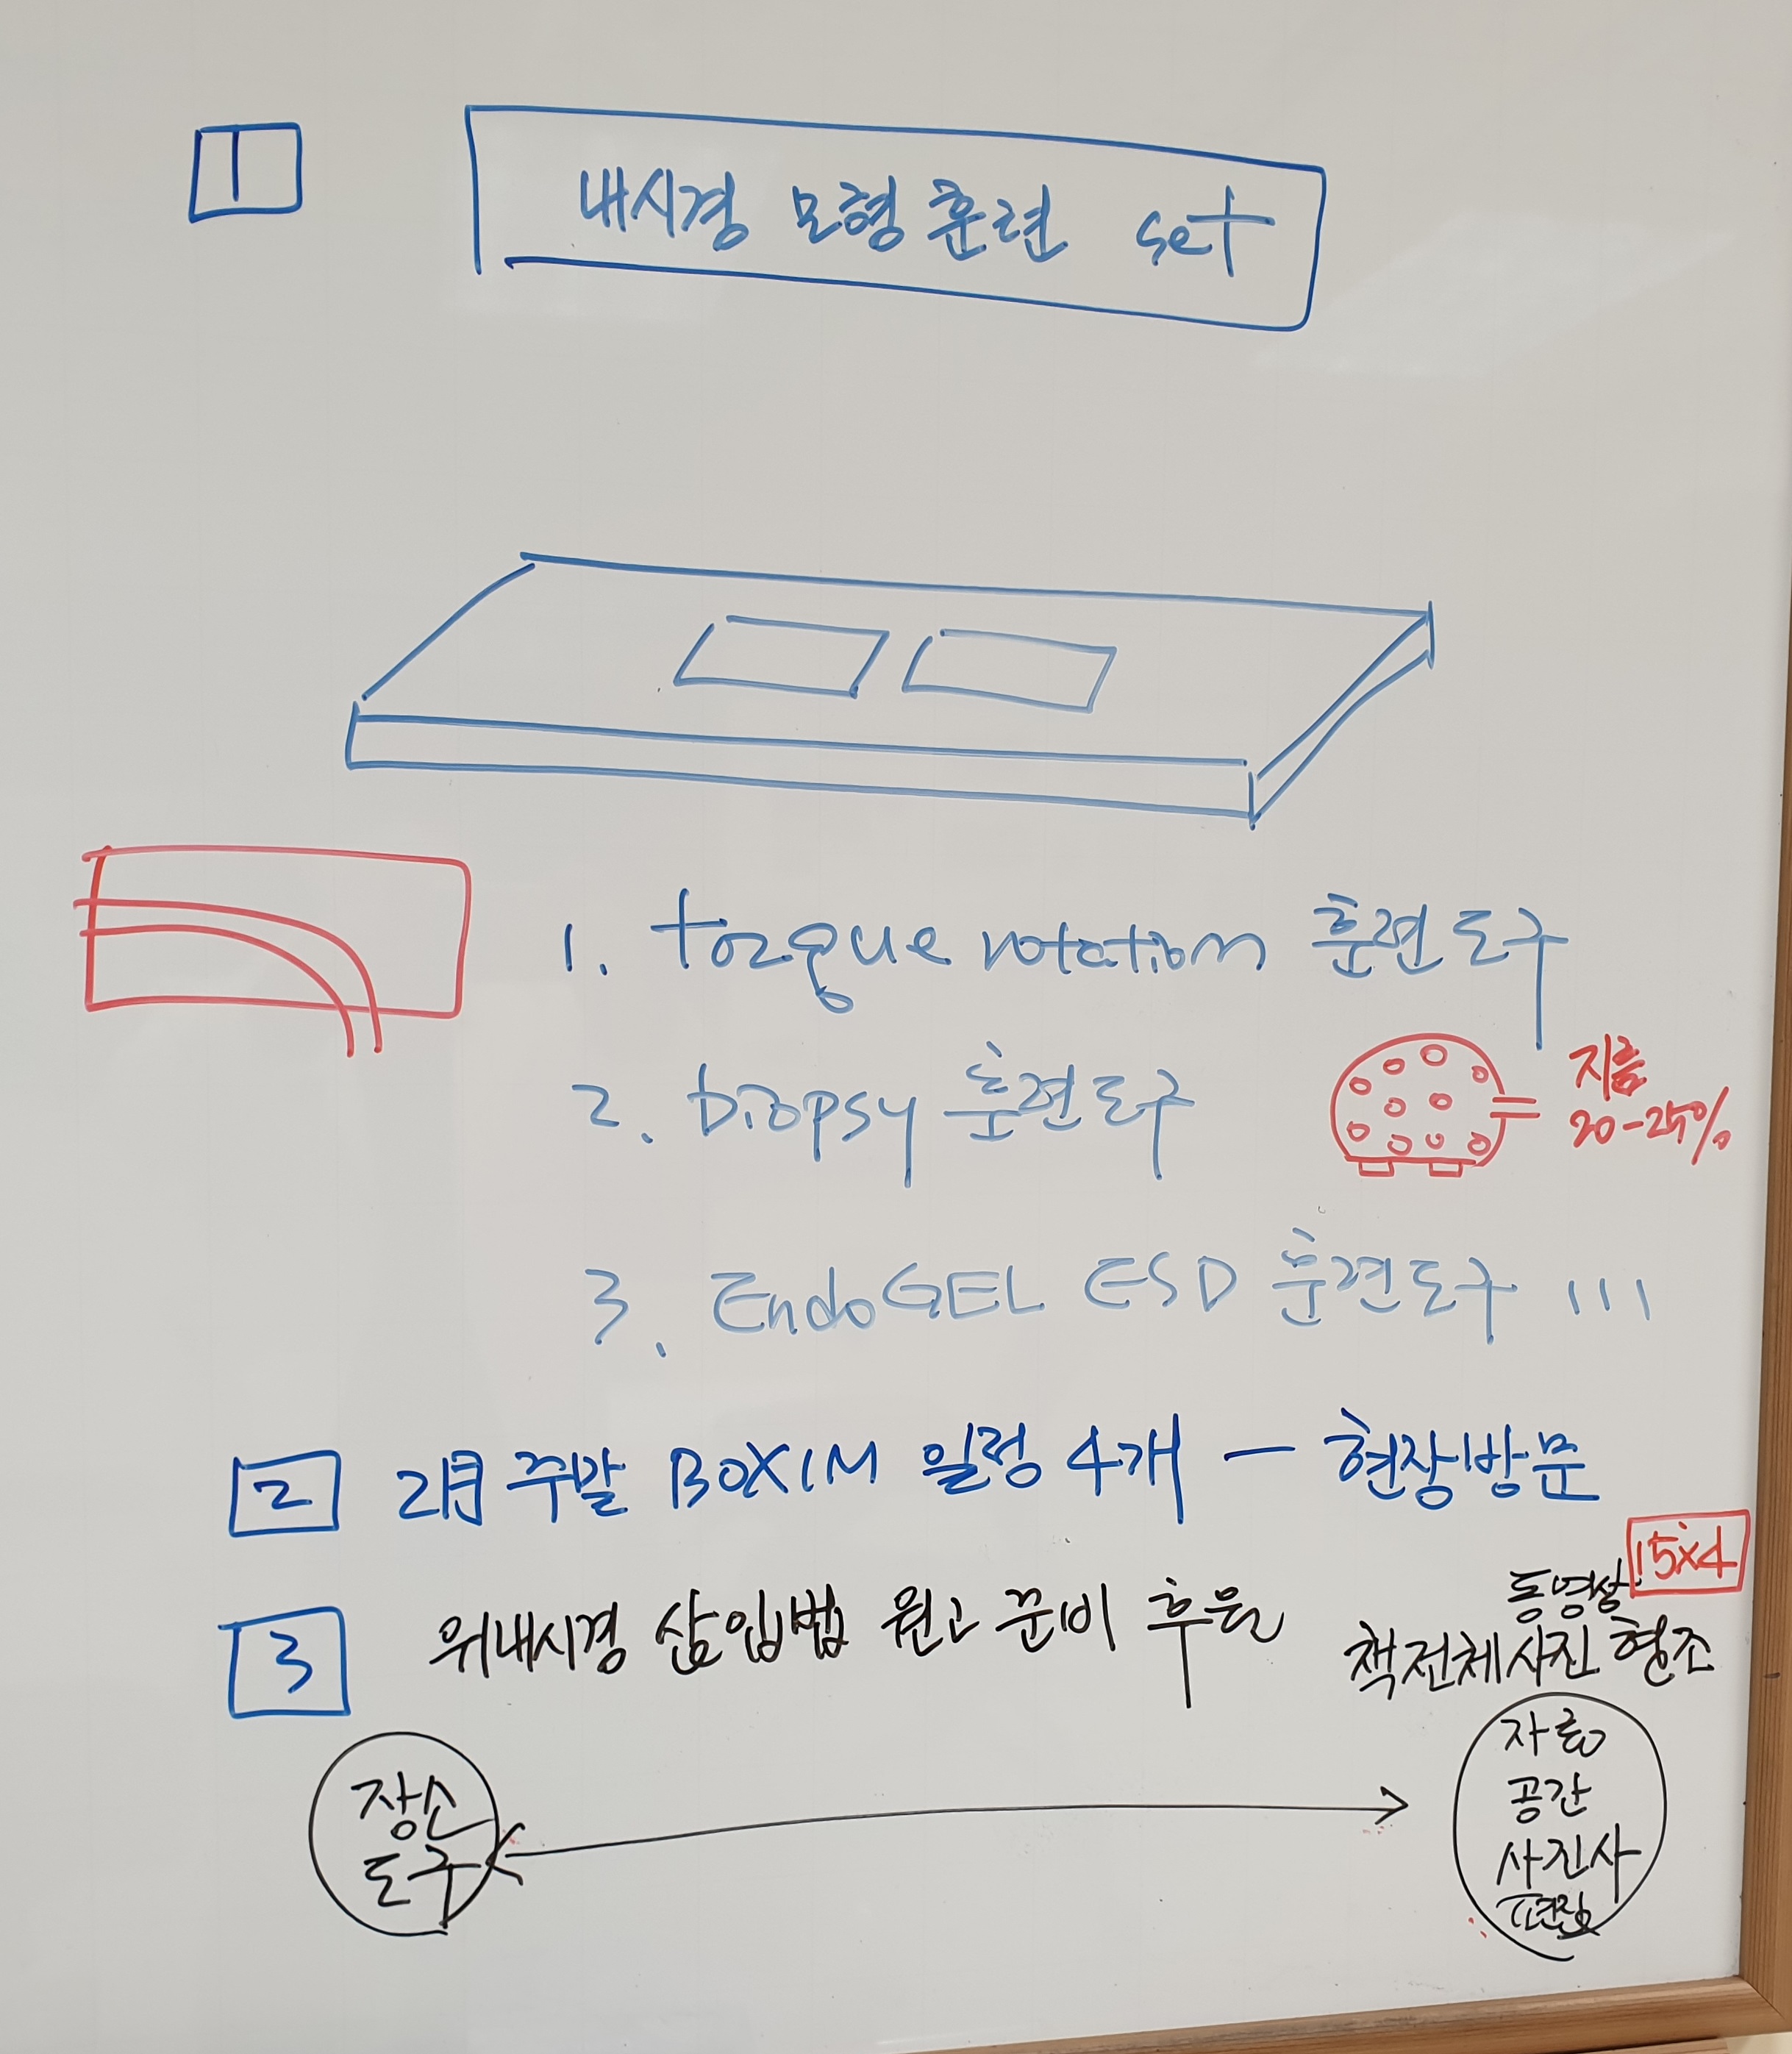 1
내시경 모형 훈련 set
1. torque rotation 훈련도구
2. biopsy 훈련도구
지름
20-25%
3. EndoGEL ESD 훈련도구 111
2 2月 주말 BOXIM 일정 4개 — 현장방문
15x4
동영상
3 위내시경 삽입법 원고 준비 후원
책전체사진 협조
장소
도구
자료
공간
사진사
편집